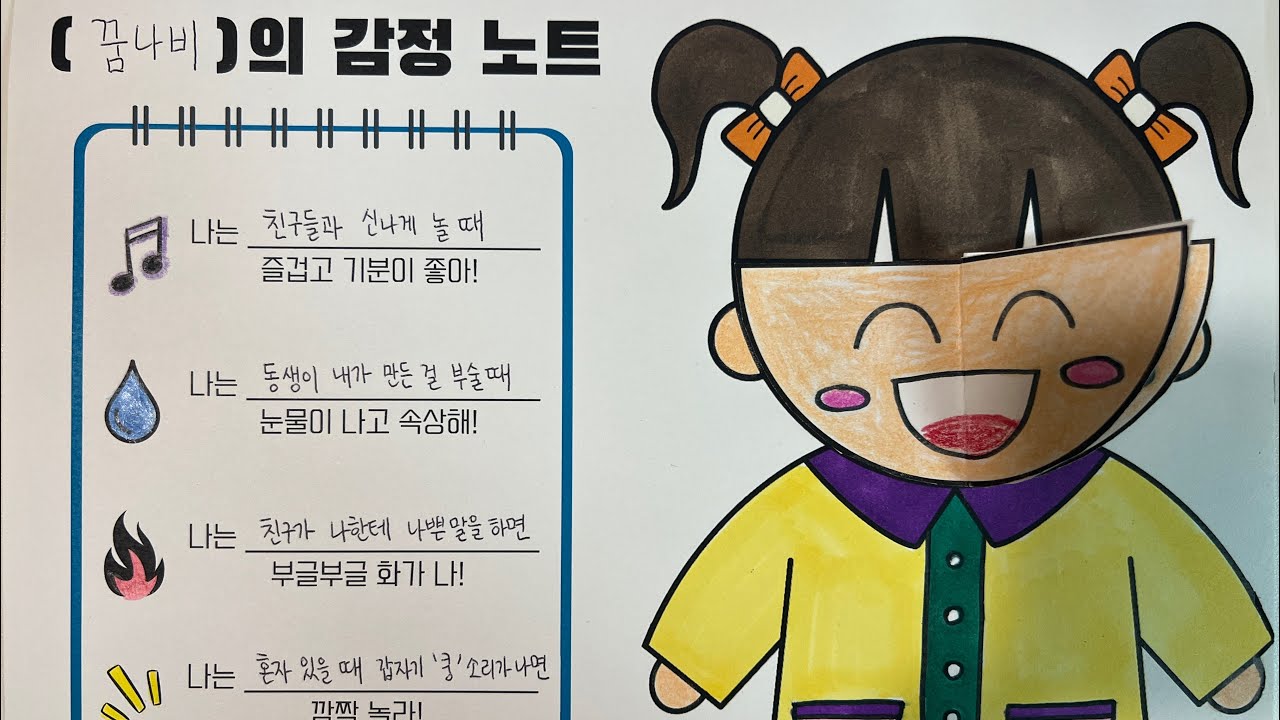 ( 꿈나비 )의 감정 노트
나는 친구들과 신나게 놀 때
즐겁고 기분이 좋아!
나는 동생이 내가 만든 걸 부술 때
눈물이 나고 속상해!
나는 친구가 나한테 나쁜 말을 하면
부글부글 화가 나!
나는 혼자 있을 때 갑자기 '쿵' 소리가 나면
깜짝 놀라!